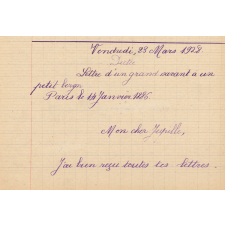 Vendredi, 23 Mars 1928
Dictée
Lettre d'un grand savant à un
petit berger
Paris le 14 Janvier 1886.
Mon cher Jupille,
J'ai bien reçu toutes tes lettres.